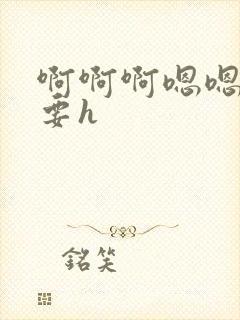 啊啊啊嗯嗯
要h
銘笑